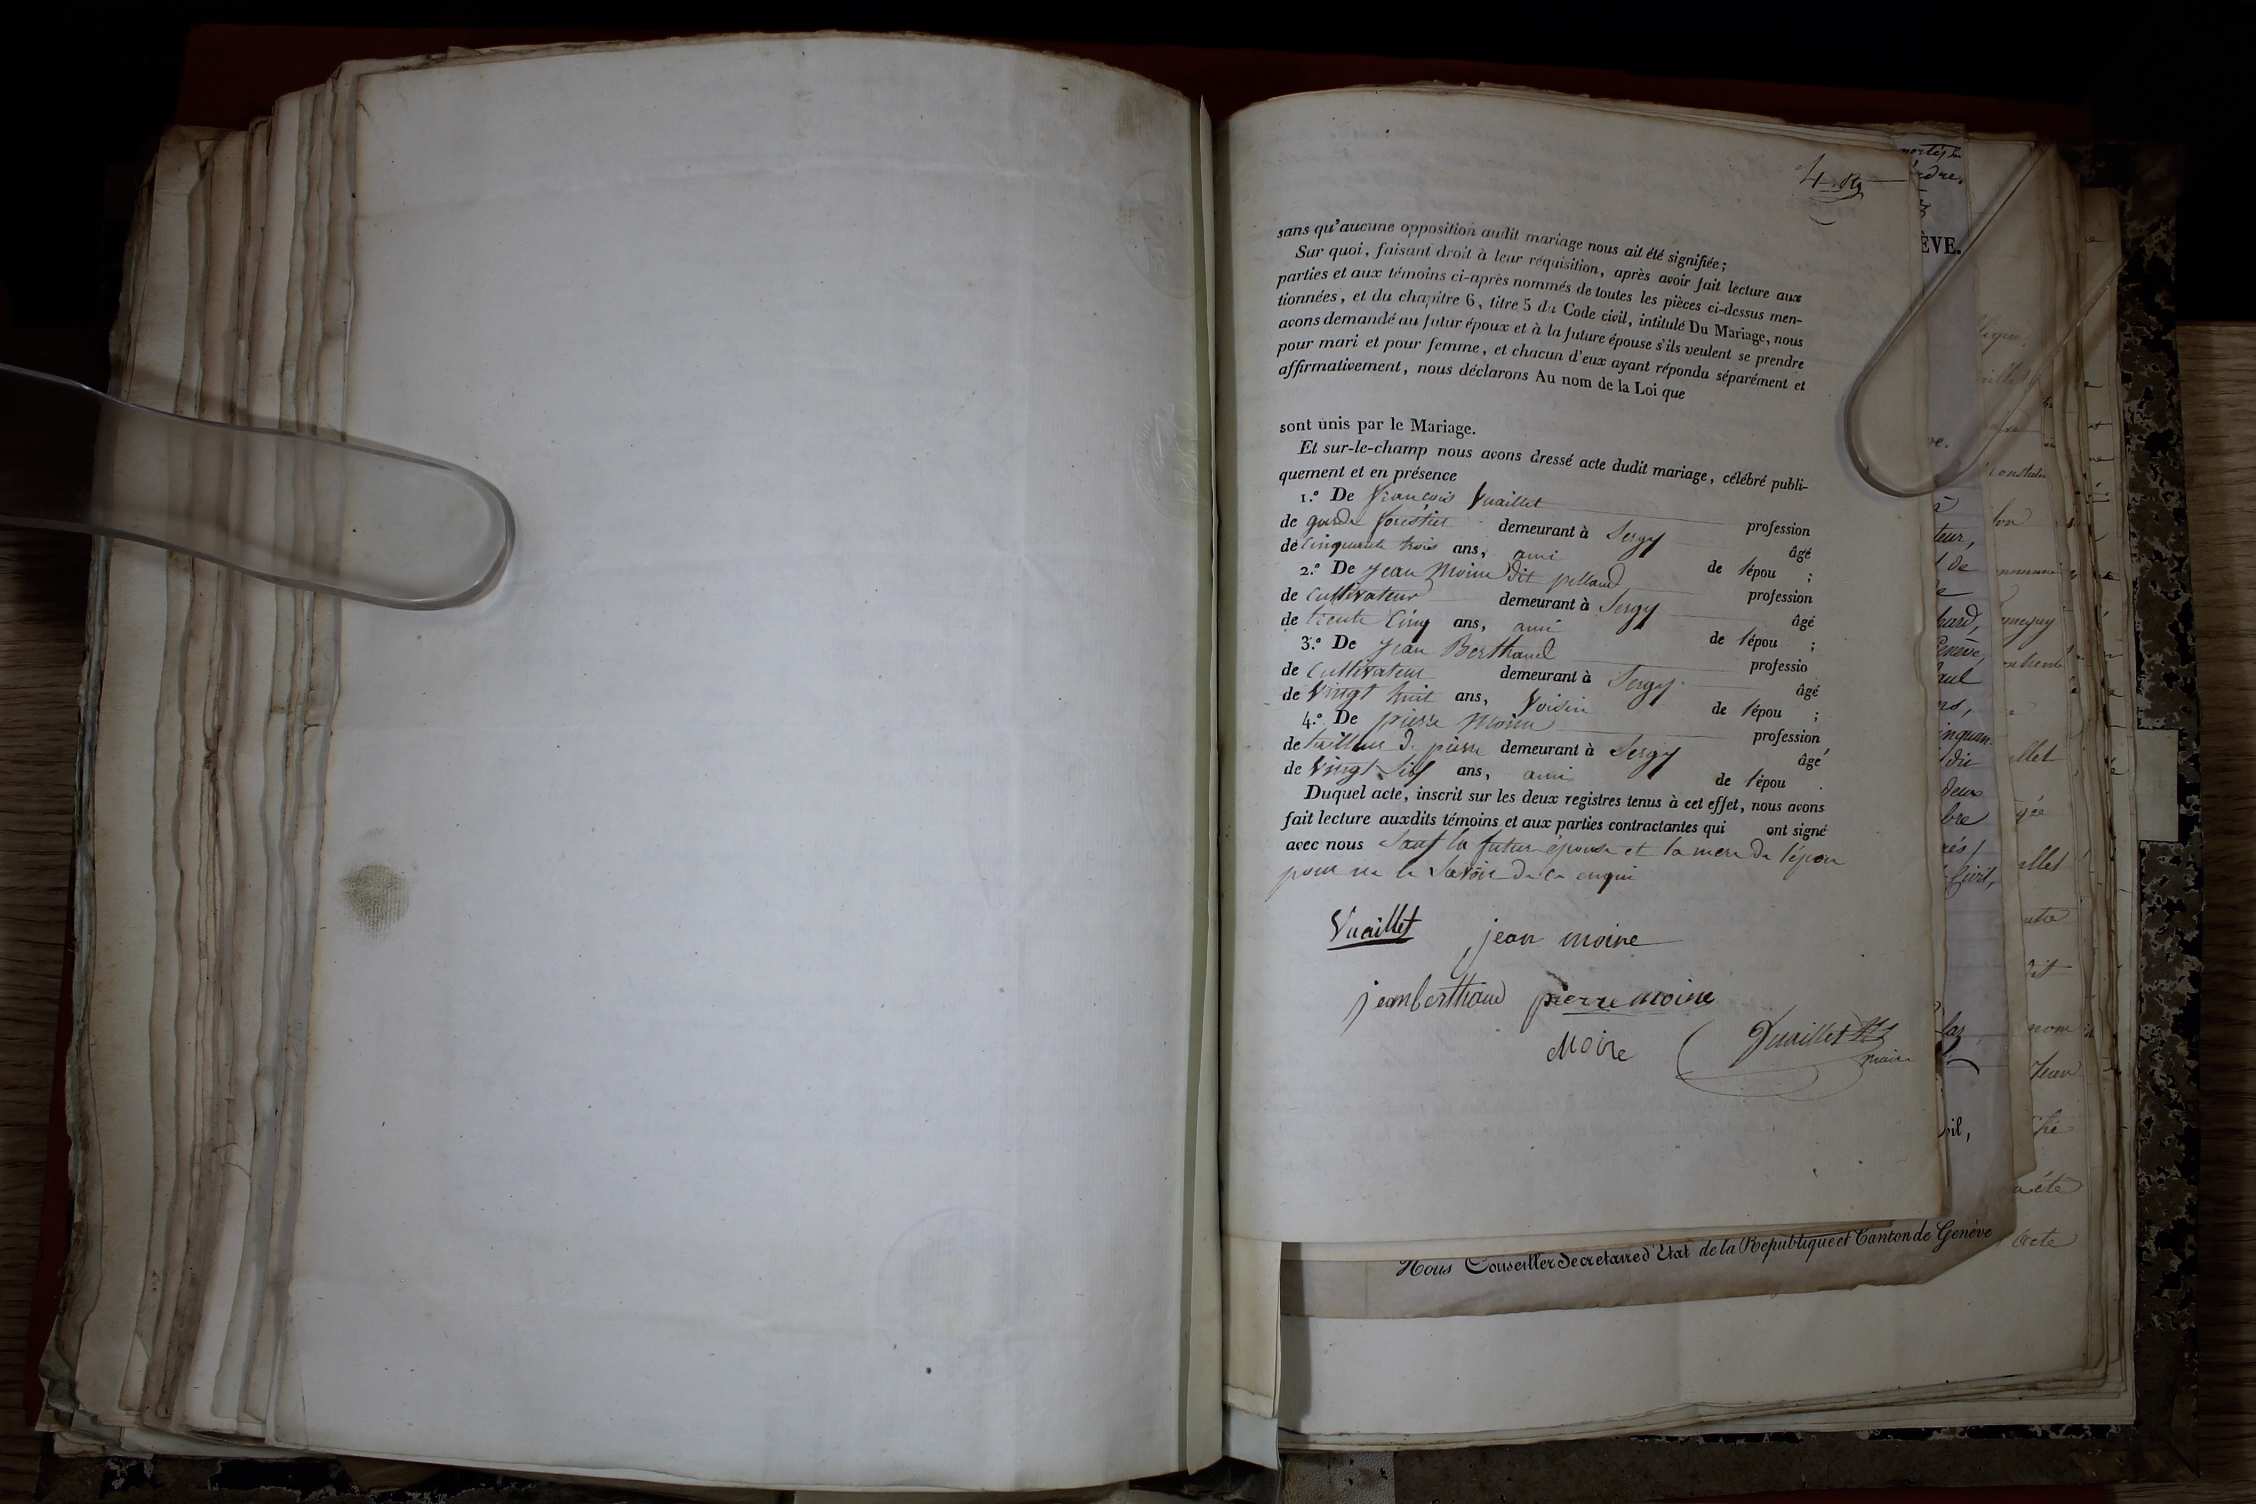 sans qu'aucune opposition audit mariage nous ait été signifiée;
Sur quoi, faisant droit à leur réquisition, après avoir fait lecture aux
parties et aux témoins ci-après nommés de toutes les pièces ci-dessus men-
tionnées, et du chapitre 6, titre 5 du Code civil, intitulé Du Mariage, nous
avons demandé au futur époux et à la future épouse s'ils veulent se prendre
pour mari et pour femme, et chacun d'eux ayant répondu séparément et
affirmativement, nous déclarons Au nom de la Loi que
sont unis par le Mariage.
Et sur-le-champ nous avons dressé acte dudit mariage, célébré publi-
quement et en présence
1.º De François Vuaillet profession
de garde forestier demeurant à Sergy âgé
de Cinquante trois ans, ami de l'épou ;
2.º De Jean Moine dit pelland profession
de Cultivateur demeurant à Sergy âgé
de trente Cinq ans, ami de l'épou ;
3.º De Jean Berthaud professio
de Cultivateur demeurant à Sergy âgé
de Vingt huit ans, Voisin de l'épou ;
4.º De pierre Moine profession
de tailleur de pierre demeurant à Sergy âgé
de Vingt Six ans, ami de l'épou .
Duquel acte, inscrit sur les deux registres tenus à cet effet, nous avons
fait lecture auxdits témoins et aux parties contractantes qui ont signé
avec nous Sauf la future épouse et la mere de l'épou
pour ne le Savoir de ce enqui
Vuaillet jean moine
jean berthaud pierre moine
Moine Vuaillet
maire
Nous Conseiller Secretaire d'Etat de la Republique et Canton de Genève
ÈVE.
teur,
Genève,
deux
Civil,
nom
Jean
acte